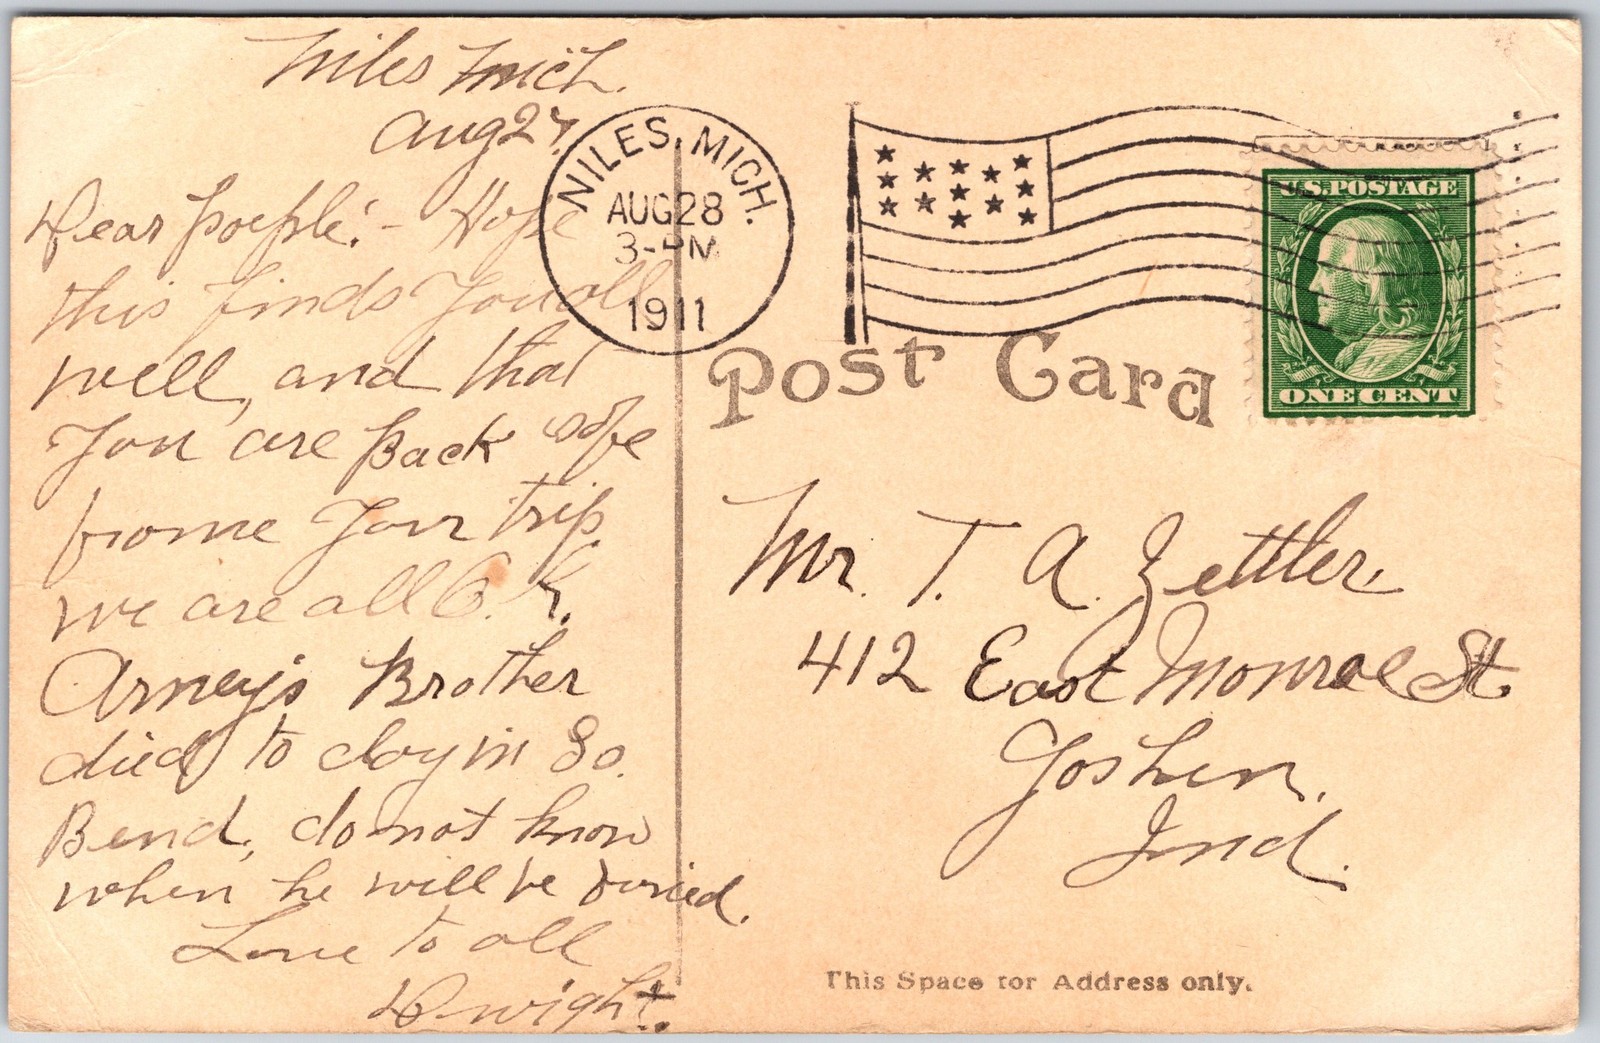 Niles Mich.
Aug 27.
Dear people:- Hope
this finds You all
well, and that
You are Back safe
frome Your trip.
we are all O.K.
Arney's Brother
died to day in So.
Bend, do not know
when he will be buried.
Love to all
Dwight.
NILES, MICH.
AUG 28
3-PM
1911
U.S. POSTAGE
ONE CENT
Post Card
Mr. T. A. Zettler,
412 East Monroe St.
Goshen,
Ind.
This Space for Address only.